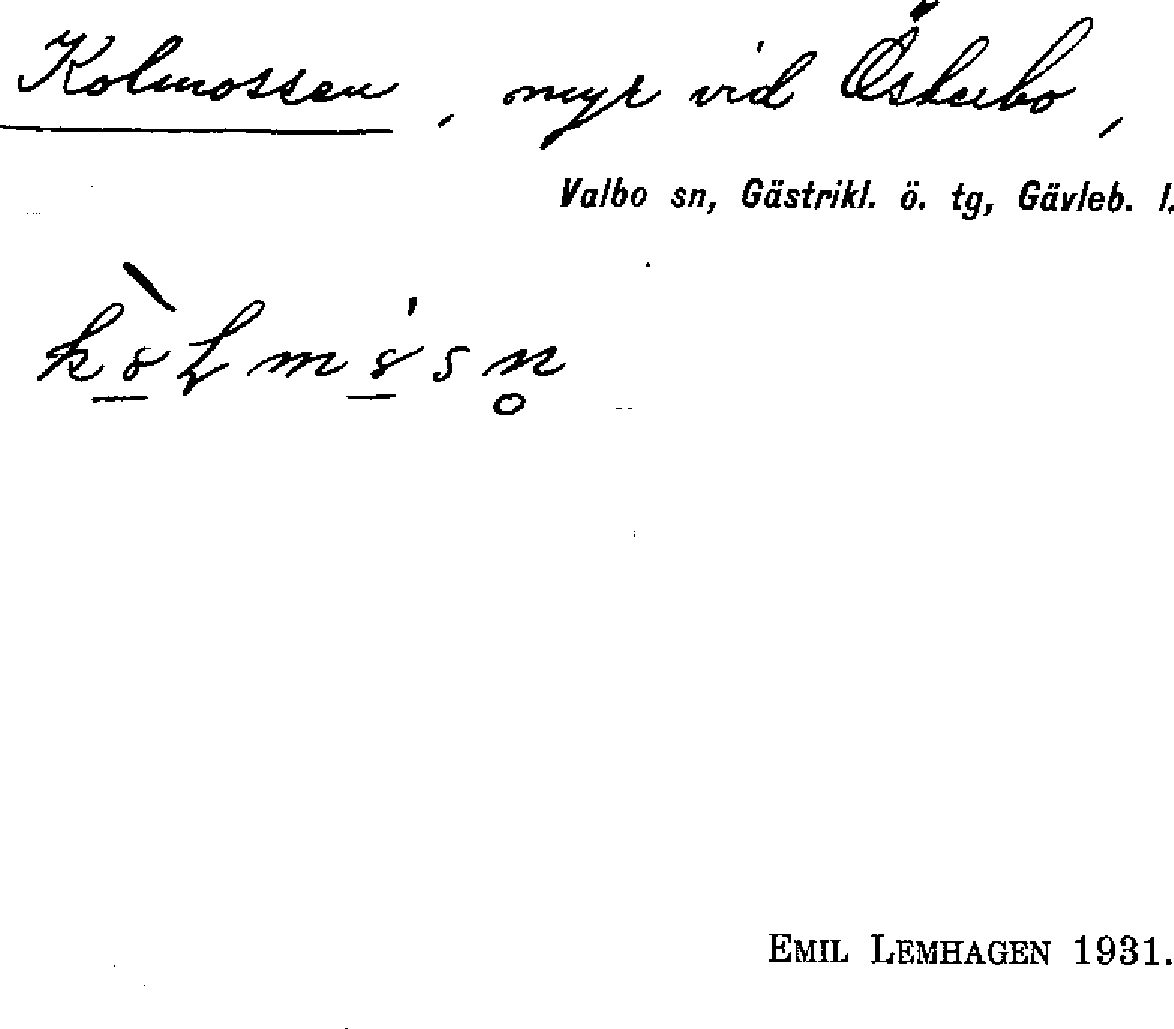 Kolmossen, myr vid
Valbo sn, Gästrikl. ö. tg, Gävleb. l.
EMIL LEMHAGEN 1931.